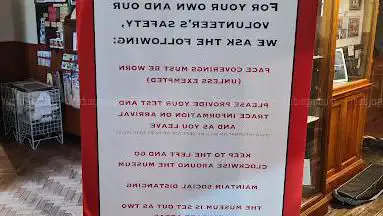 FOR YOUR OWN AND OUR
VOLUNTEER'S SAFETY,
WE ASK THE FOLLOWING:
FACE COVERINGS MUST BE WORN
(UNLESS EXEMPTED)
PLEASE PROVIDE YOUR TEST AND
TRACE INFORMATION ON ARRIVAL
AND AS YOU LEAVE
KEEP TO THE LEFT AND GO
CLOCKWISE AROUND THE MUSEUM
MAINTAIN SOCIAL DISTANCING
THE MUSEUM IS SET OUT AS TWO